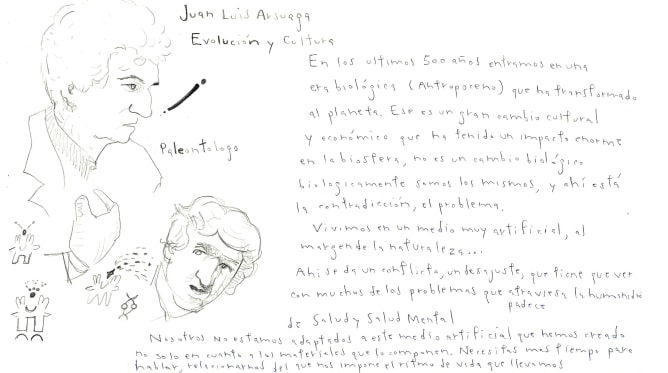 Juan Luis Arsuaga
Evolución y Cultura
Paleontologo
En los ultimos 500 años entramos en una
era biológica (Antropoceno) que ha transformado
al planeta. Ese es un gran cambio cultural
y económico que ha tenido un impacto enorme
en la biosfera, no es un cambio biológico
biologicamente somos los mismos, y ahí está
la contradicción, el problema.
Vivimos en un medio muy artificial, al
margen de la naturaleza...
Ahi se da un conflicto, un desajuste, que tiene que ver
con muchos de los problemas que atraviesa la humanidad
padece
de Salud y Salud Mental
Nosotros no estamos adaptados a este medio artificial que hemos creado
no solo en cuanto a los materiales que lo componen. Necesitas mas tiempo para
hablar, relacionarnos del que nos impone el ritmo de vida que llevamos